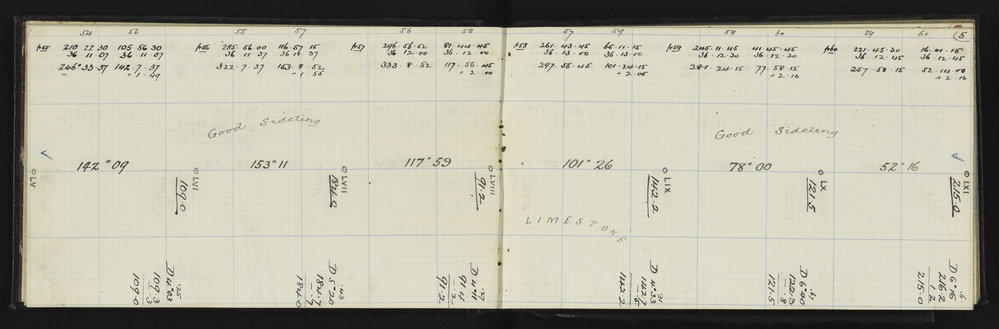 54 56
210 22 30 105 56 30
36 11 07 36 11 07
246°33·37 142·7·37
+1·49
55 57
285·56·00 116·57·15
36·11·37
322·7·37 153·8·52
56 58
296·56·52 81·44·45
36·12·00 36·12·00
333·8·52 117·56·45
+2·00
57 59
261·43·45 65·11·15
36·13·00 36·13·00
297·56·45 101·24·15
+2·05
58 60
245·11·45 41·45·45
36·12·30 36·12·30
281·24·15 77·58·15
+2·10
59 61
221·45·30 16·01·15
36·12·45 36·12·45
257·58·15 52·14·00
+2·16
5
Good Sideling
Good Sideling
142°09
153°11
117°59
101°26
78°00
52°16
LV
LVI
109.0
LVII
184.0
LVIII
91.2
LIX
142.2
LX
121.5
LXI
215.0
LIMESTONE
109.3
.3
109.0
D 5°20
184.7
.7
184.0
91.4
.2
91.2
D 4°33
142.7
142.2
D 6°40
.8
121.5
D 6°16
216.2
1.2
215.0